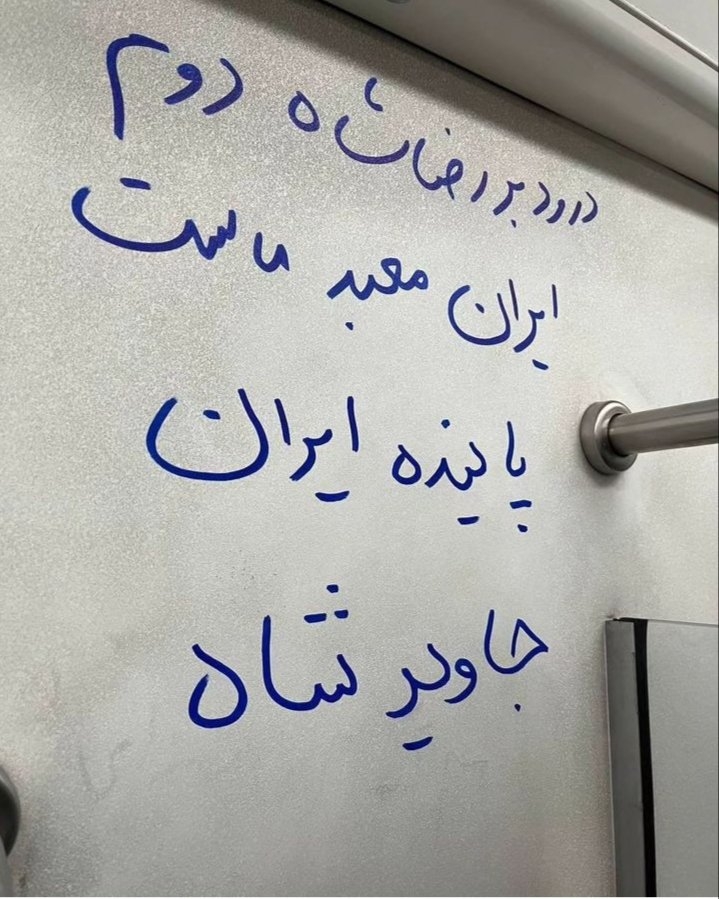 درود بر رضا شاه دوم
ایران معبد ماست
پاینده ایران
جاوید شاه